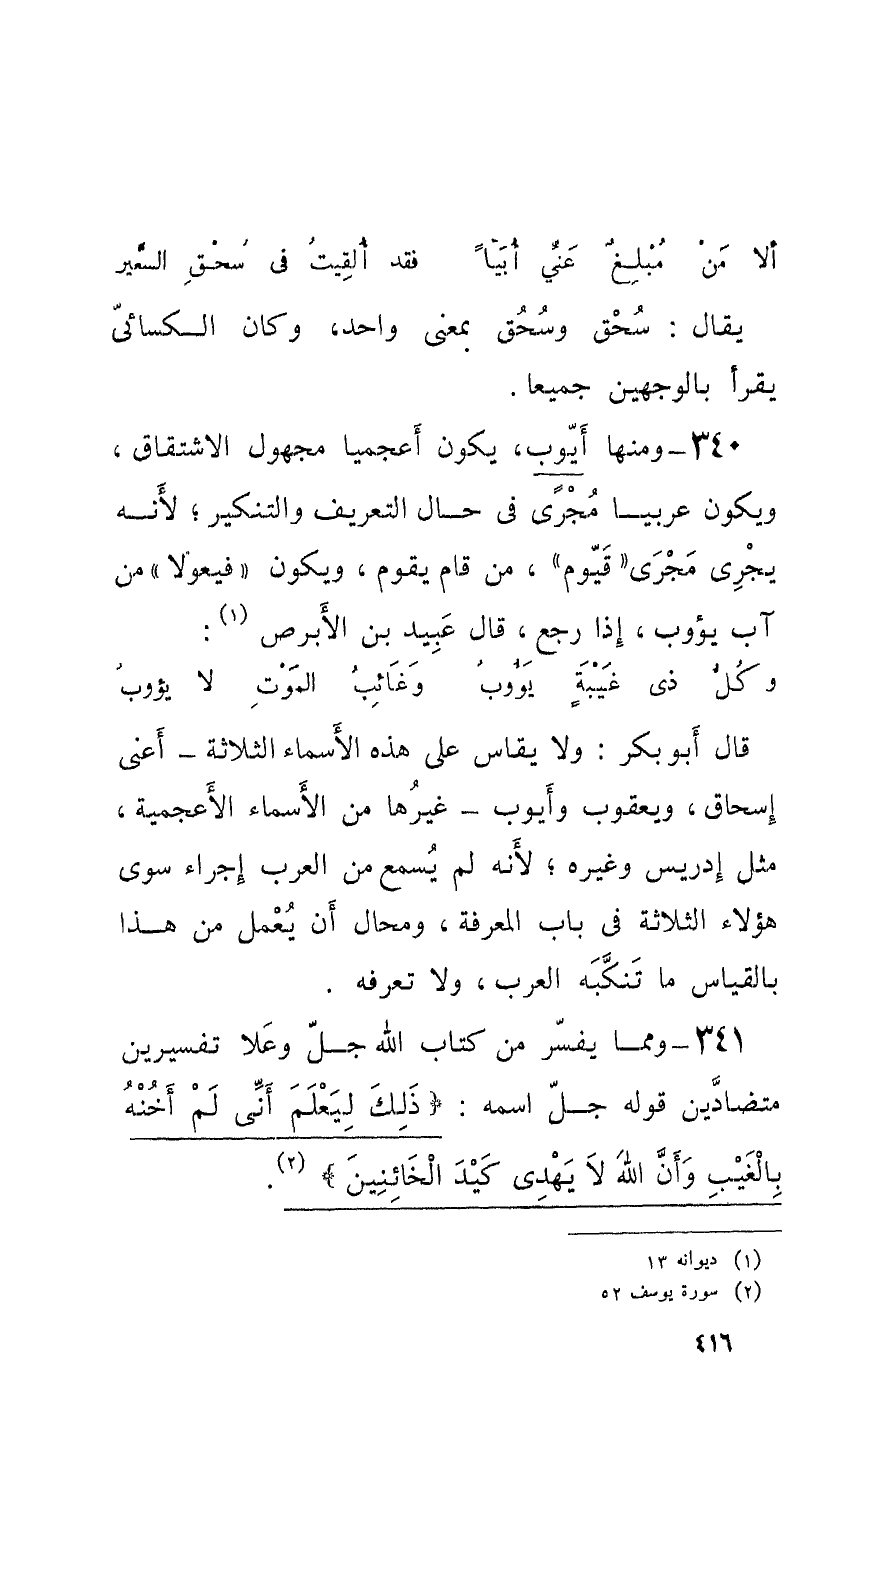 ألا مَنْ مُبْلِغٌ عَنِّي أُبَيًّا فقد أُلقِيتُ فى سُحْقِ السَّعِير
يقال : سُحْق وسُحُق بمعنى واحد، وكان الـكسائىّ
يقرأ بالوجهين جميعا .
٣٤٠ـ ومنها أَيّوب، يكون أَعجميا مجهول الاشتقاق ،
ويكون عربيـا مُجْرًى فى حـال التعريف والتنكير ؛ لأَنـه
يجْرِى مَجْرَى «قَيّوم» ، من قام يقوم ، ويكون «فيعولا» من
آب يؤوب ، إِذا رجع ، قال عَبِيد بن الأَبرص (١) :
وكُلُّ ذى غَيْبَةٍ يَؤُوبُ وَغَائِبُ المَوْتِ لا يؤوبُ
قال أَبو بكر : ولا يقاس على هذه الأَسماء الثلاثة ـ أَعنى
إِسحاق ، ويعقوب وأَيوب ـ غيرُها من الأَسماء الأَعجمية ،
مثل إِدريس وغيره ؛ لأَنه لم يُسمع من العرب إِجراء سوى
هؤلاء الثلاثة فى باب المعرفة ، ومحال أَن يُعْمل من هـذا
بالقياس ما تَنكَّبَه العرب ، ولا تعرفه .
٣٤١ـ وممـا يفسّر من كتاب الله جـلّ وعَلا تفسيرين
متضادَّين قوله جـلّ اسمه : ﴿ ذَلِكَ لِيَعْلَمَ أَنِّى لَمْ أَخُنْهُ
بِالْغَيْبِ وَأَنَّ اللهَ لاَ يَهْدِى كَيْدَ الْخَائِنِينَ ﴾ (٢).
(١) ديوانه ١٣
(٢) سورة يوسف ٥٢
٤١٦